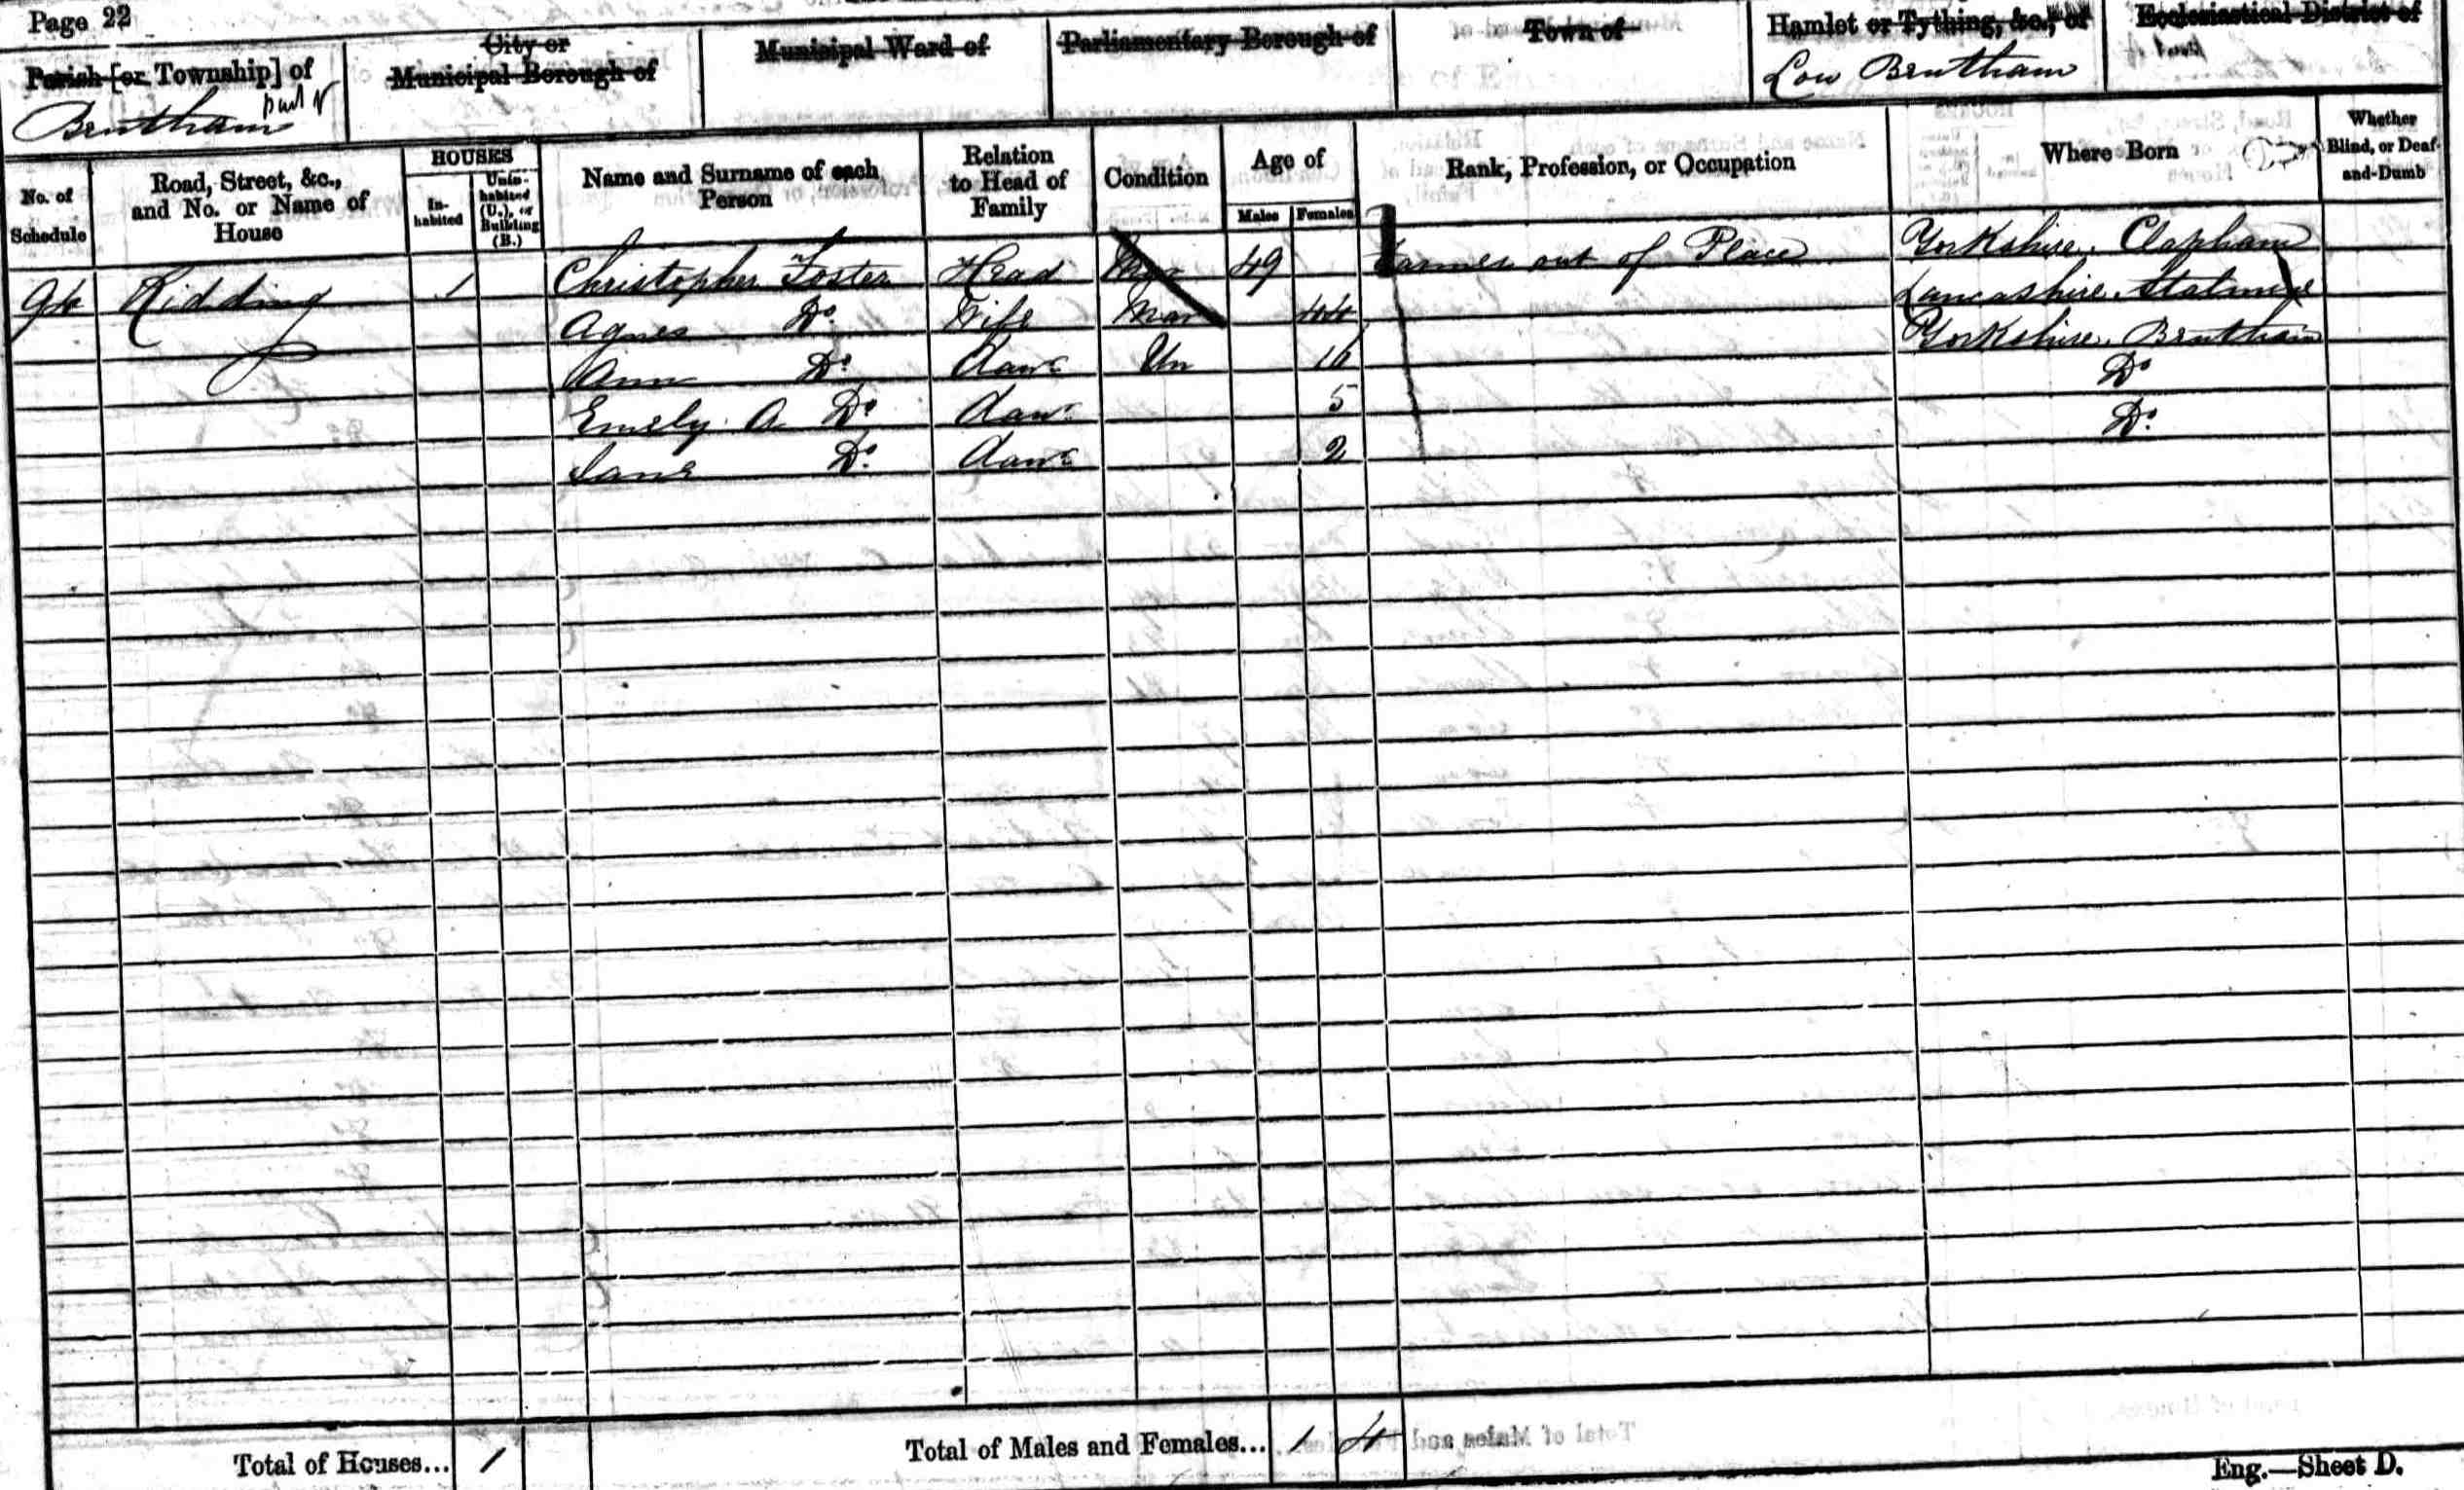 Page 22
Parish [or Township] of
Bentham part of
City or
Municipal Borough of
Municipal Ward of
Parliamentary Borough of
Town of
Hamlet or Tything, &c., of
Low Bentham
Ecclesiastical District of
No. of
Schedule
Road, Street, &c.,
and No. or Name of
House
HOUSES
In-
habited
Unin-
habited
(U.), or
Building
(B.)
Name and Surname of each
Person
Relation
to Head of
Family
Condition
Age of
Males Females
Rank, Profession, or Occupation
Where Born
Whether
Blind, or Deaf-
and-Dumb
94 Ridding 1 Christopher Foster Head Mar 49 Farmer out of Place Yorkshire. Clapham
Agnes Do. Wife Mar 44 Lancashire. Stalmine
Ann Do. Daur Un 16 Yorkshire. Bentham
Emely A Do. Daur 5 Do.
Jane Do. Daur 2 Do.
Total of Houses... 1
Total of Males and Females... 1 4
Eng.—Sheet D.